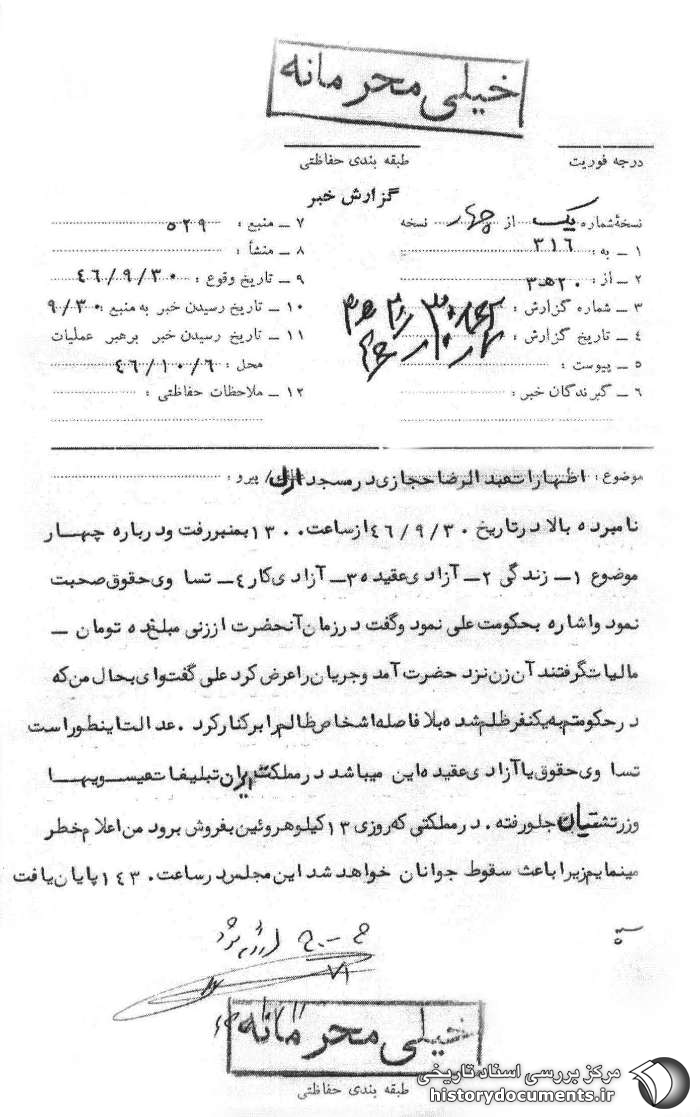 خیلی محرمانه
درجه فوریت
طبقه بندی حفاظتی
گزارش خبر
نسخهٔ شماره یک از چهار نسخه
۱ ــ به : ۳۱۶
۲ ــ از : ۲۰ هـ ۳
۳ ــ شماره گزارش :
۴ ــ تاریخ گزارش :
۵ ــ پیوست :
۶ ــ گیرندگان خبر :
۷ ــ منبع : ۵۲۹
۸ ــ منشأ :
۹ ــ تاریخ وقوع : ۴۶/۹/۳۰
۱۰ ــ تاریخ رسیدن خبر به منبع : ۹/۳۰
۱۱ ــ تاریخ رسیدن خبر برهبر عملیات
محل : ۴۶/۱۰/۶
۱۲ ــ ملاحظات حفاظتی :
موضوع : اظهارات عبدالرضا حجازی در مسجد ارک / پیرو :
نامبرده بالا در تاریخ ۴۶/۹/۳۰ از ساعت ۱۳۰۰ بمنبر رفت و درباره چهار
موضوع ۱ــ زندگی ۲ــ آزادی عقیده ۳ــ آزادی کار ۴ــ تساوی حقوق صحبت
نمود و اشاره بحکومت علی نمود و گفت در زمان آنحضرت از زنی مبلغ ده تومان ــ
مالیات گرفتند آن زن نزد حضرت آمد و جریان را عرض کرد علی گفت وای بحال من که
در حکومتم به یکنفر ظلم شده بلافاصله اشخاص ظالم را بر کنار کرد . عدالت اینطور است
تساوی حقوق یا آزادی عقیده این میباشد در مملکت ایران تبلیغات عیسویها
و زرتشتیان جلو رفته . در مملکتی که روزی ۱۳ کیلو هروئین بفروش برود من اعلام خطر
مینمایم زیرا باعث سقوط جوانان خواهد شد این مجلس در ساعت ۱۴۳۰ پایان یافت
۷۱
خیلی محرمانه
طبقه بندی حفاظتی
مرکز بررسی اسناد تاریخی
historydocuments.ir